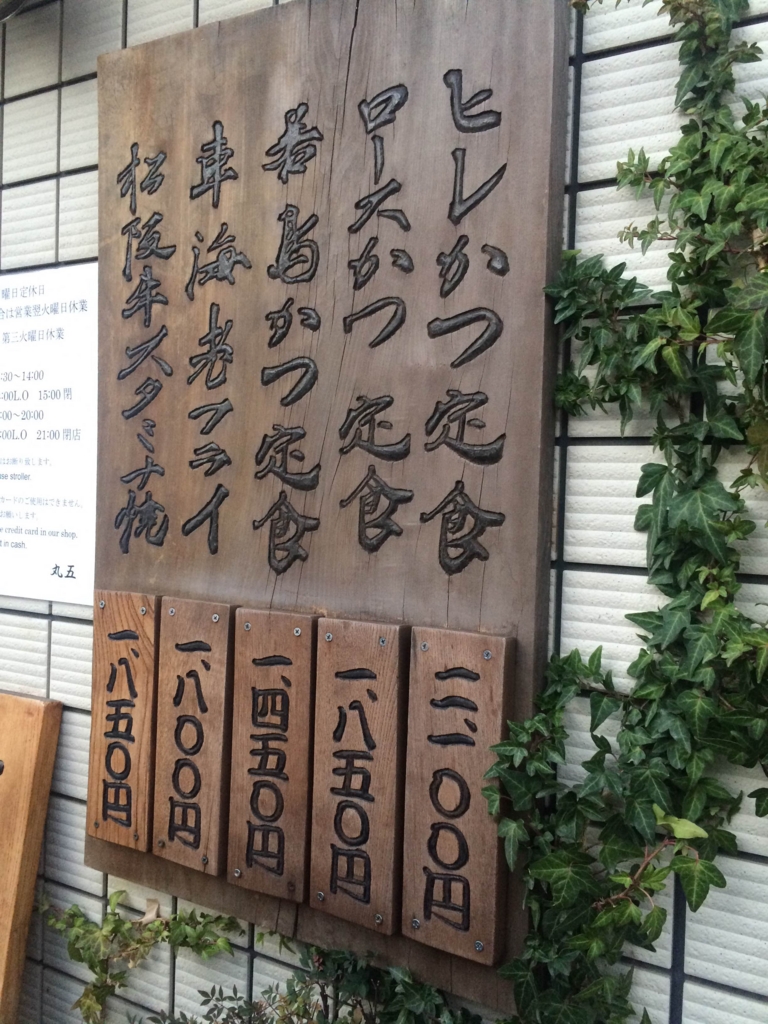 ヒレかつ定食
ロースかつ定食
若鳥かつ定食
車海老フライ
松阪牛スタミナ焼
二、一〇〇円
一、八五〇円
一、四五〇円
一、八〇〇円
一、八五〇円
曜日定休日
合は営業翌火曜日休業
第三火曜日休業
:30～14:00
:00L.O 15:00 閉
:00～20:00
:00L.O 21:00 閉店
はお断り致します。
stroller.
カードのご使用はできません。
お願いします。
credit card in our shop.
in cash.
丸五